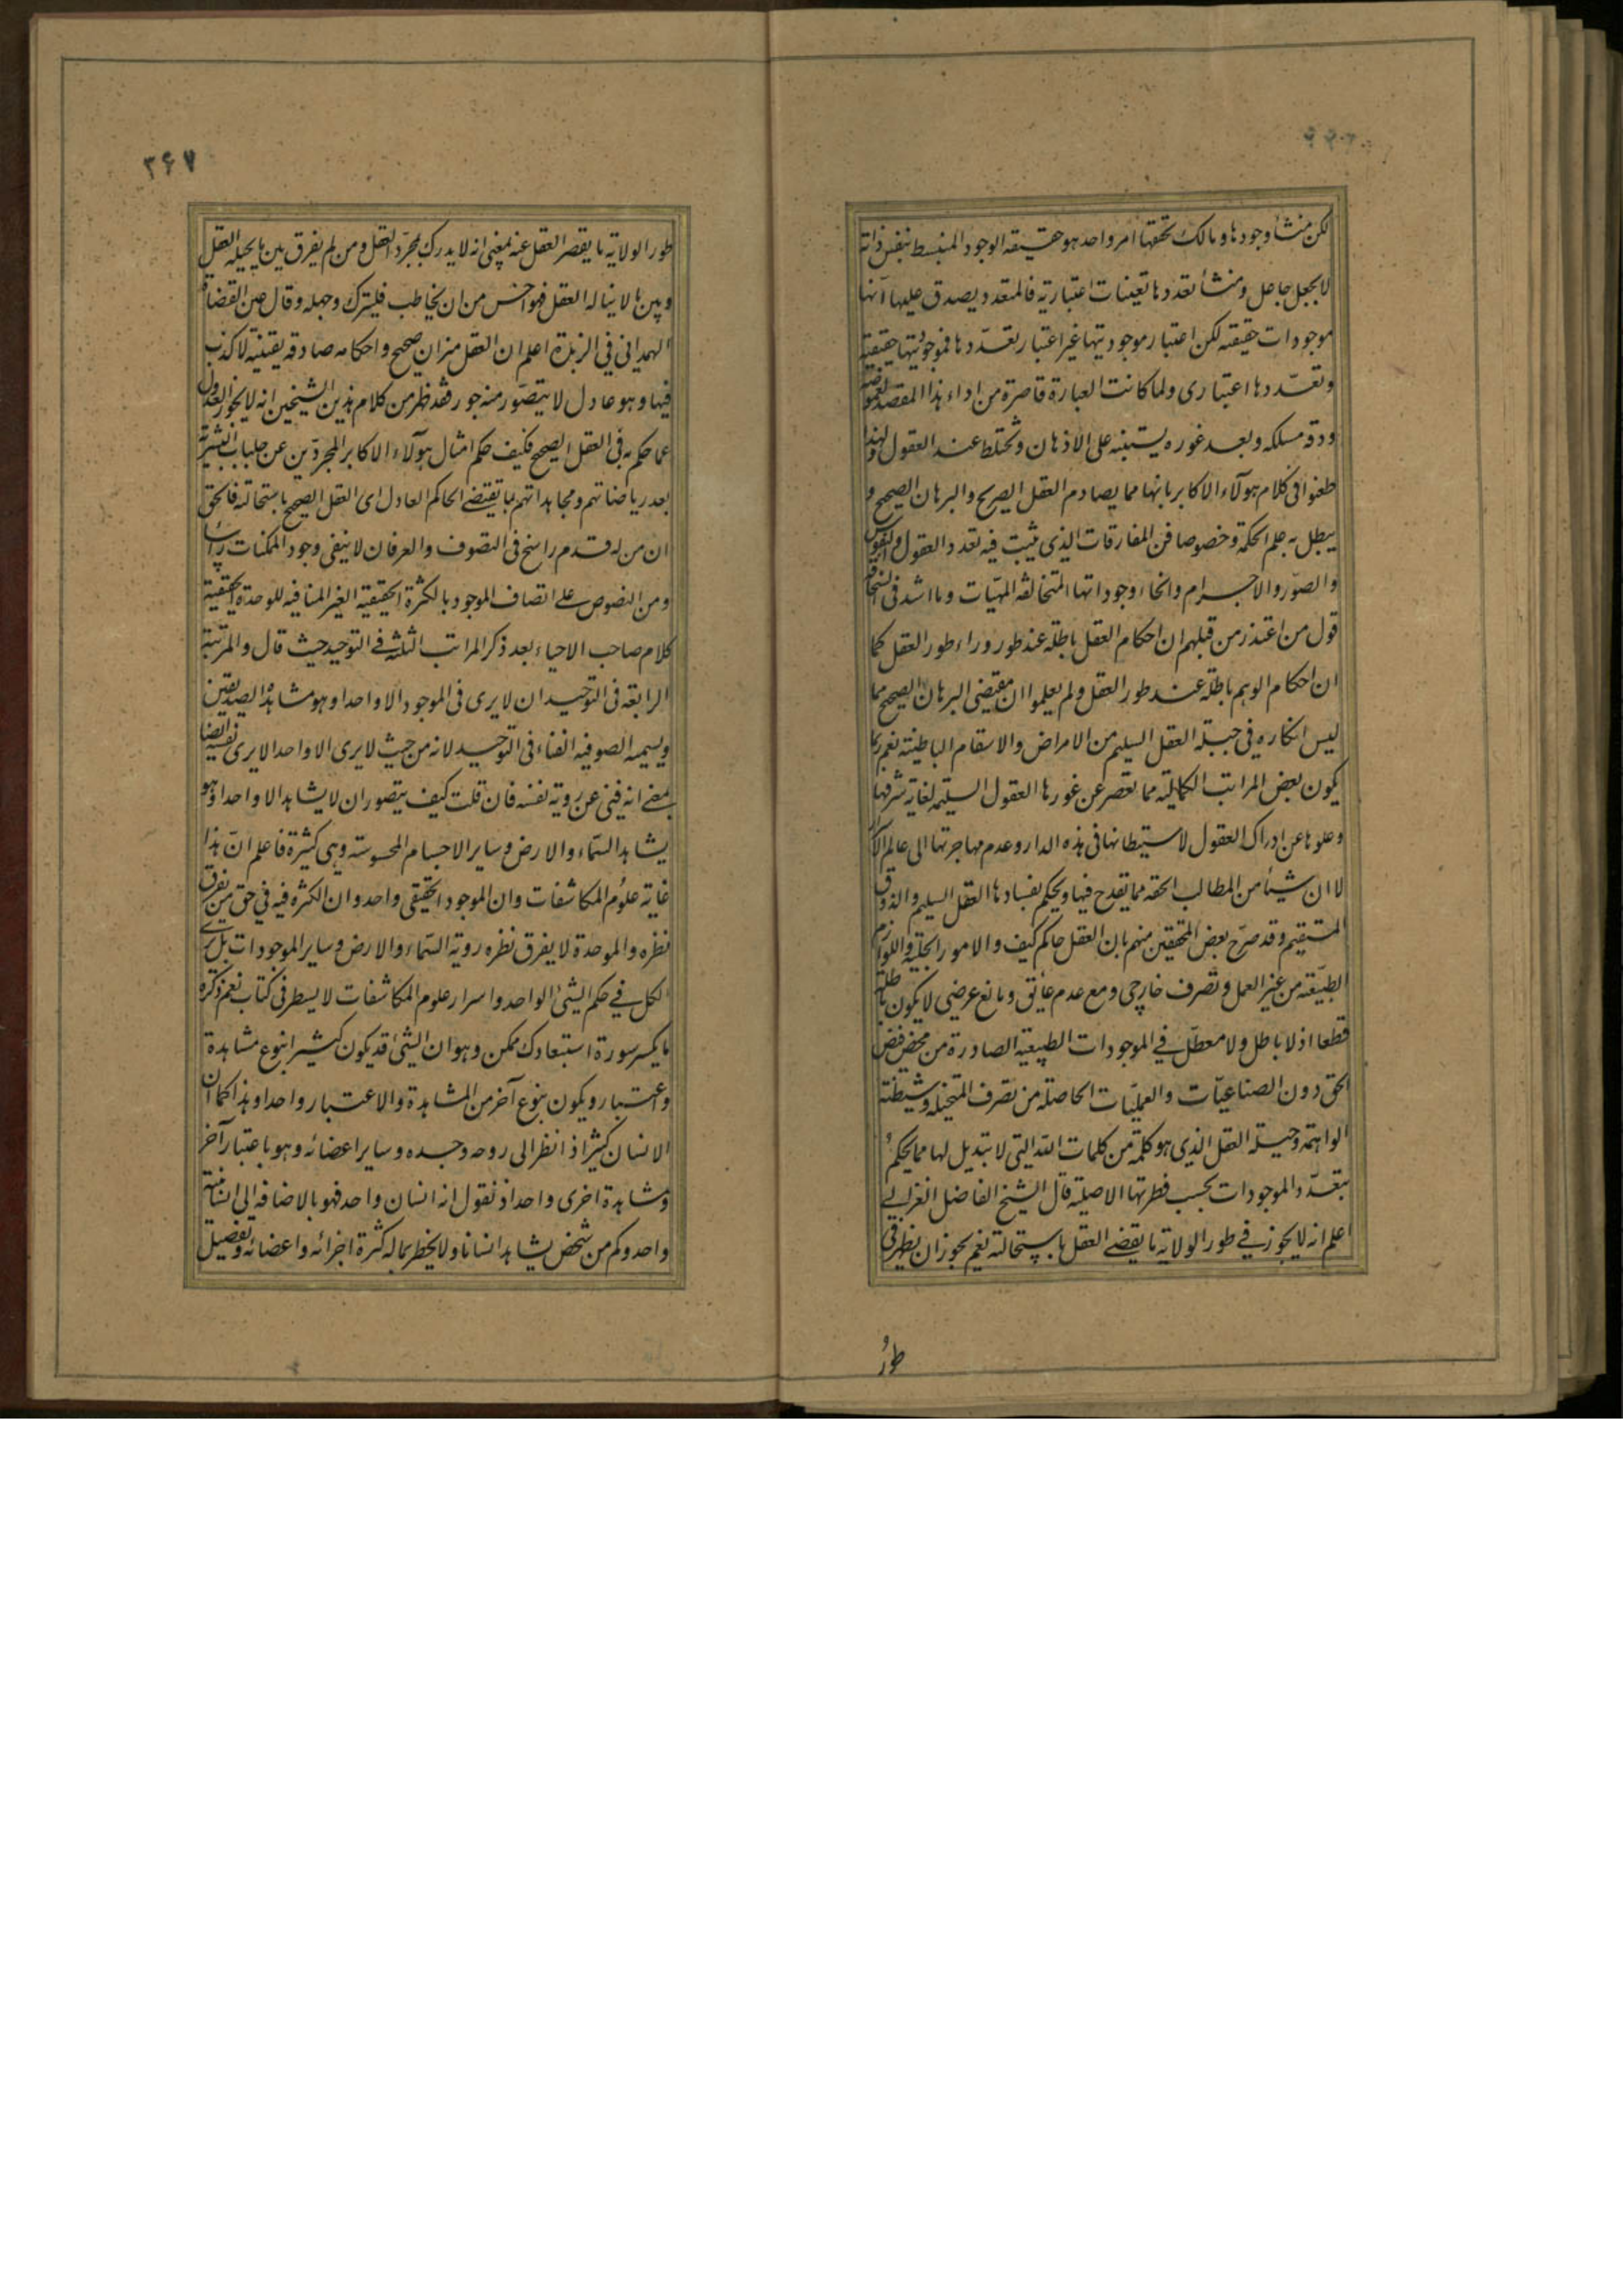 لكن منشأ وجودها وملاك تحققها امر واحد هو حقيقة الوجود المنبسط بنفس ذاته
لا بجعل جاعل ومنشأ تعددها تعينات اعتبارية فالمتعدد يصدق عليها انها
موجودات حقيقته لكن اعتبار موجوديتها غير اعتبار تعدّدها فموجوديتها حقيقية
وتعدّدها اعتبارى ولما كانت العبارة قاصرة من اداء هذا المقصد لغموضه
ودقة مسلكه وبعد غوره يشتبه على الاذهان وتختلط عند العقول ولهذا
طعنوا فى كلام هولآء الاكابر بانها مما يصادم العقل الصريح والبرهان الصحيح و
يبطل به علم الحكمة وخصوصا فن المفارقات الذى يثبت فيه تعدد العقول والنفوس
والصوّر والاجرام وانحاء وجوداتها المتخالفة المهيّات وما اشد فى السخافة
قول من اعتذر من قبلهم ان احكام العقل باطلة عند طور وراء طور العقل كما
ان احكام الوهم باطلة عند طور العقل ولم يعلموا ان مقتضى البرهان الصحيح مما
ليس انكاره فى جبلة العقل السليم من الامراض والاسقام الباطنية نعم ربما
يكون بعض المراتب الكمالية مما تقصر عن غورها العقول السليمة لغاية شرفها
وعلوها عن ادراك العقول لاستيطانها فى هذه الدار وعدم مهاجرتها الى عالم الاسرار
لا ان شيئا من المطالب الحقه مما يقدح فيها ويحكم بفسادها العقل السليم والذوق
المستقيم وقد صرّح بعض المحققين منهم بان العقل حاكم كيف والامور الجبلية واللوازم
الطبيّعة من غير العمل وتصرف خارجى ومع عدم عائق ومانع عرضى لا يكون باطلة
قطعا اذ لا باطل ولا معطّل في الموجودات الطبيعية الصادرة من محض فيض
الحق دون الصناعيّات والعمليّات الحاصلة من تصرف المتخيلة وشيطنة
الواهمة وجبلة العقل الذي هو كلمة من كلمات الله التي لا تبديل لها مما يحكم
بتعدّد الموجودات بحسب فطرتها الاصلية قال الشيخ الفاضل الغزالي
اعلم انه لا يجوز في طور الولاية ما يقضي العقل باستحالته نعم يجوز ان يظهر فى
طور
٣۶٧
طور الولاية ما يقصر العقل عنه بمعنى انه لا يدرك بمجرّد العقل ومن لم يفرق بين ما يحيله العقل
وبين ما لا يناله العقل فهو اخس من ان يخاطب فليترك وجهله وقال عين القضاة
الهمدانى فى الزبدة اعلم ان العقل ميزان صحيح واحكامه صادقة يقينية لا كذب
فيها وهو عادل لا يتصوّر منه جور فقد ظهر من كلام هذين الشيخين انه لا يجوز العدول
عما حكم به فى العقل الصحيح فكيف حكم امثال هولآء الاكابر المجردّين عن جلباب البشرية
بعد رياضاتهم ومجاهداتهم بما يقتضي الحاكم العادل اى العقل الصحيح باستحالته فالحق
ان من له قدم راسخ فى التصوف والعرفان لا ينفى وجود الممكنات رأسا
ومن النصوص على اتصاف الموجود بالكثرة الحقيقية الغير المنافيه للوحدة الحقيقية
كلام صاحب الاحياء بعد ذكر المراتب الثلثه في التوحيد حيث قال والمرتبة
الرابعة فى التوحيد ان لا يرى فى الموجود الا واحدا وهو مشاهدة الصديقين
ويسميه الصوفيه الفناء فى التوحيد لانه من حيث لا يرى الا واحدا لا يرى نفسه ايضا
بمعنى انه فنى عن روية نفسه فان قلت كيف يتصور ان لا يشاهد الا واحدا وهو
يشاهد السّماء والارض وساير الاجسام المحسوسة وهى كثيرة فاعلم انّ هذا
غاية علوُم المكاشفات وان الموجود الحقيقى واحد وان الكثره فيه في حق من يفرق
نظره والموحدة لا يفرق نظره روية السّماء والارض وساير الموجودات بل يرى
الكل في حكم الشئ الواحد واسرار علوم المكاشفات لا يسطر فى كتاب نعم ذكره
ما يكسر سورة استبعادك ممكن وهو ان الشئ قد يكون كثيرا بنوع مشاهدة
واعتبار ويكون بنوع آخر من المشاهدة والاعتبار واحدا وهذا كما ان
الانسان كثيرا اذا نظر الى روحه وجسده وساير اعضائه وهو باعتبار آخر
ومشاهدة اخرى واحد اذ نقول انه انسان واحد فهو بالاضافه الى انسانيته
واحد وكم من شخص يشاهد انسانا ولا يخطر بماله كثرة اجزائه واعضائه وتفصيل